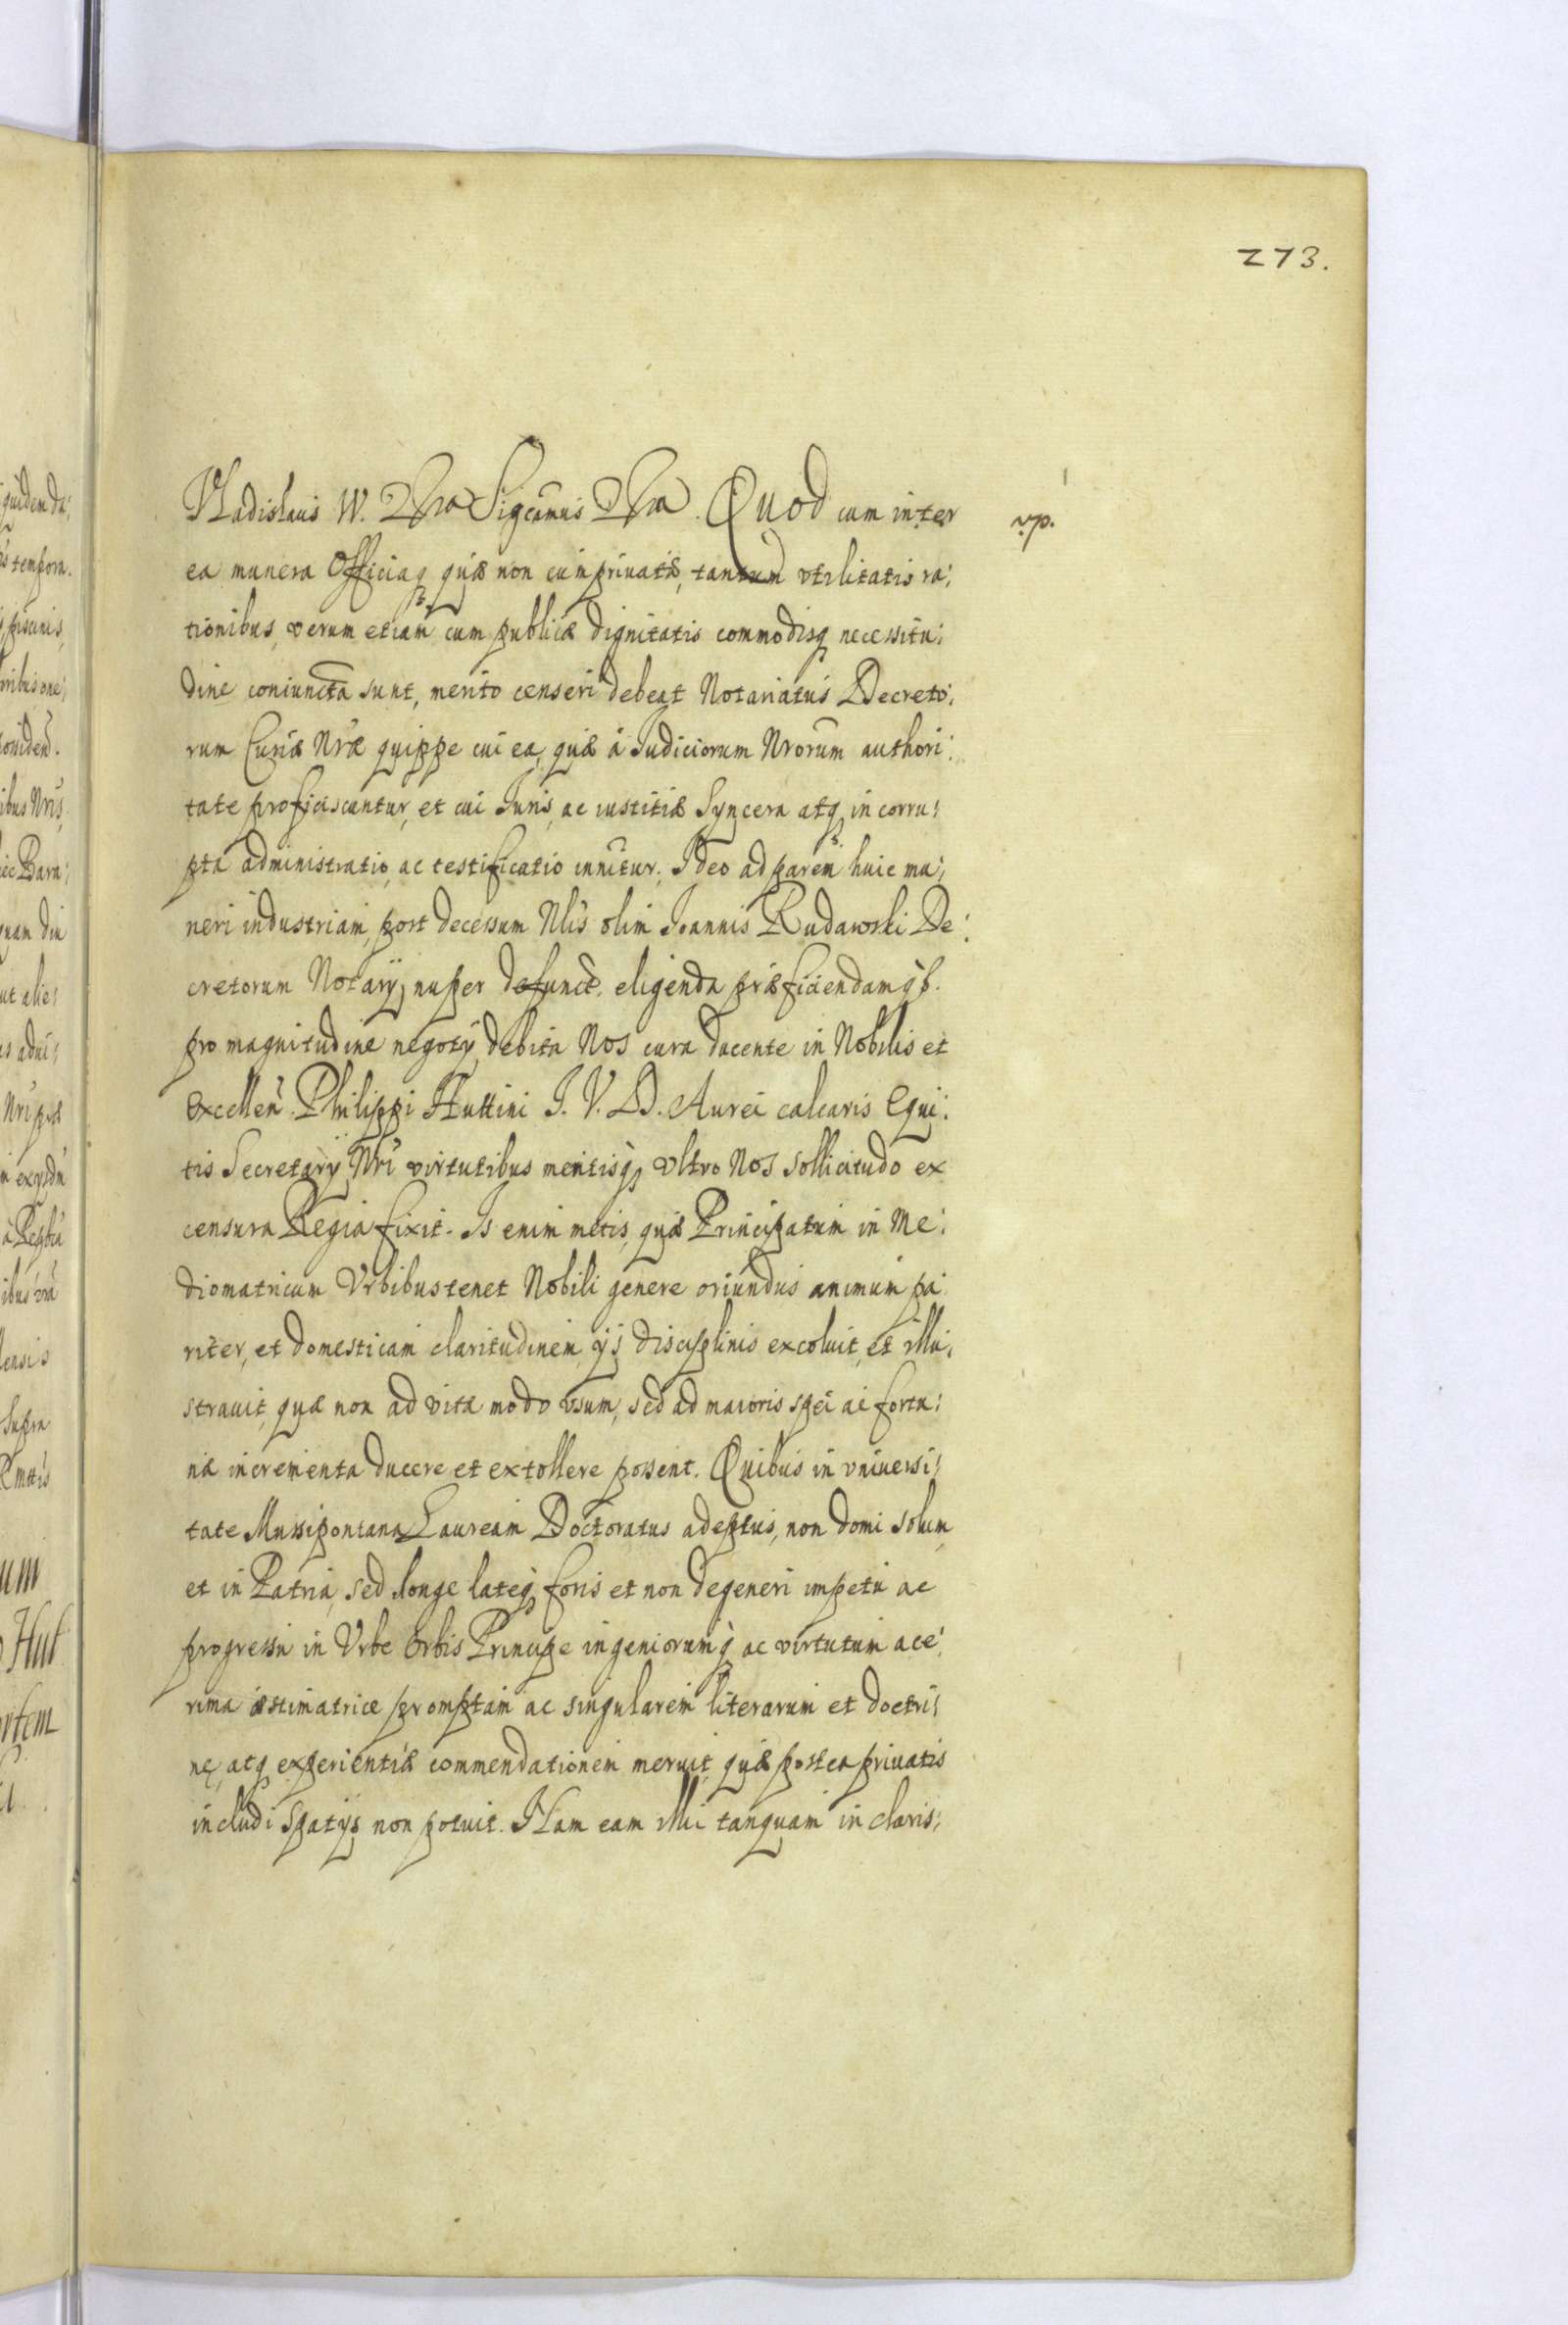 273.
Vladislaus IV. Sigcamus Quod cum inter
ea munera Officiaq quæ non cum priuatæ, tantum vtilitatis ra:
tionibus, verum etiam cum publicæ dignitatis commodisq necessitu:
dine coniuncta sunt, merito censeri debeat Notariatus Decreto:
rum Curiæ Nræ quippe cui ea, quæ á Iudiciorum Nrorum authori:
tate proficiscuntur, et cui Iuris, ac iustitiæ Syncera atq, in corru:
pta administratio, ac testificatio innitur. Ideo ad parem huic mu:
neri industriam, post decessum Nlis olim Joannis Rudawski De:
cretorum Notarij nuper defunct. eligenda præficiendamq
pro magnitudine negotij debita Nos cura ducente in Nobilis et
Excellen. Philippi Huttini I. V. D. Aurei calcaris Equi:
tis Secretarij Nri virtutibus meritisq, vltro Nos sollicitudo ex
censura Regia fixit. Is enim metis, quæ Principatum in Me:
diomatricum Vrbibus tenet Nobili genere oriundus animum pa
riter, et domesticam claritudinem ijs disciplinis excoluit, et illu:
strauit, quæ non ad vitæ modo vsum, sed ad maioris spei ac fortu:
næ incrementa ducere et extollere possent. Quibus in vniuersi:
tate Mussipontana Lauream Doctoratus adeptus, non domi solum,
et in Patriá, sed longe lateq, foris et non degeneri impetu ac
progressu in Vrbe Orbis Principe ingeniorumq ac virtutum ace:
rima æstimatrice promptam ac singularem literarum et doctri:
nę, atq experientiæ commendationem meruit, quæ postea priuatis
includi Spatijs non potuit. Nam eam illi tanquam in claris: